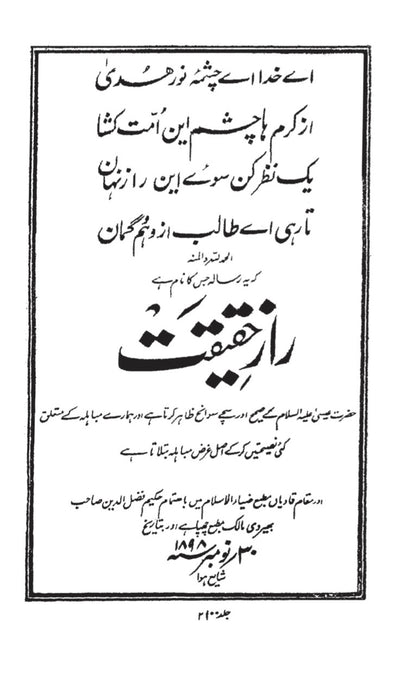 اے خدا اے چشمۂ نور ھُدیٰ
از کرم ہا چشم این اُمّت کشا
یک نظر کن سوئے این راز نہان
تا رہی اے طالب از وہم گمان
الحمد للہ والمنہ
کہ یہ رسالہ جس کا نام ہے
راز حقیقت
حضرت عیسیٰ علیہ السلام کے صحیح اور سچے سوانح ظاہر کرتا ہے اور ہمارے مباہلہ کے متعلق
کئی نصیحتیں کر کے اصل غرض مباہلہ بتلاتا ہے
اور مقام قادیاں مطبع ضیاء الاسلام میں باہتمام حکیم فضل الدین صاحب
بھیروی مالک مطبع چھپا ہے اور بتاریخ
۳۰ نومبر ۱۸۹۸ء
شایع ہوا
جلد ۲۱۰۰